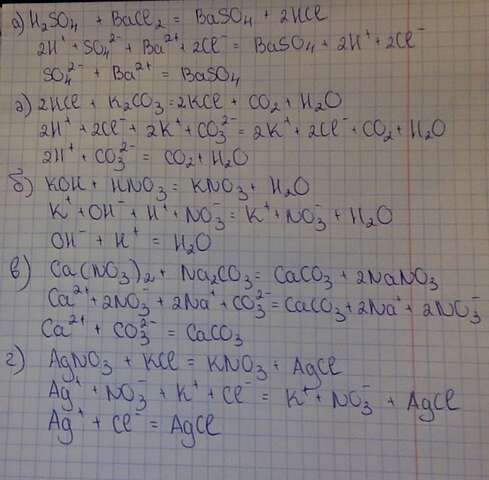 а) H₂SO₄ + BaCl₂ = BaSO₄ + 2HCl
2H⁺ + SO₄²⁻ + Ba²⁺ + 2Cl⁻ = BaSO₄ + 2H⁺ + 2Cl⁻
SO₄²⁻ + Ba²⁺ = BaSO₄
а) 2HCl + K₂CO₃ = 2KCl + CO₂ + H₂O
2H⁺ + 2Cl⁻ + 2K⁺ + CO₃²⁻ = 2K⁺ + 2Cl⁻ + CO₂ + H₂O
2H⁺ + CO₃²⁻ = CO₂ + H₂O
б) KOH + HNO₃ = KNO₃ + H₂O
K⁺ + OH⁻ + H⁺ + NO₃⁻ = K⁺ + NO₃⁻ + H₂O
OH⁻ + H⁺ = H₂O
в) Ca(NO₃)₂ + Na₂CO₃ = CaCO₃ + 2NaNO₃
Ca²⁺ + 2NO₃⁻ + 2Na⁺ + CO₃²⁻ = CaCO₃ + 2Na⁺ + 2NO₃⁻
Ca²⁺ + CO₃²⁻ = CaCO₃
г) AgNO₃ + KCl = KNO₃ + AgCl
Ag⁺ + NO₃⁻ + K⁺ + Cl⁻ = K⁺ + NO₃⁻ + AgCl
Ag⁺ + Cl⁻ = AgCl